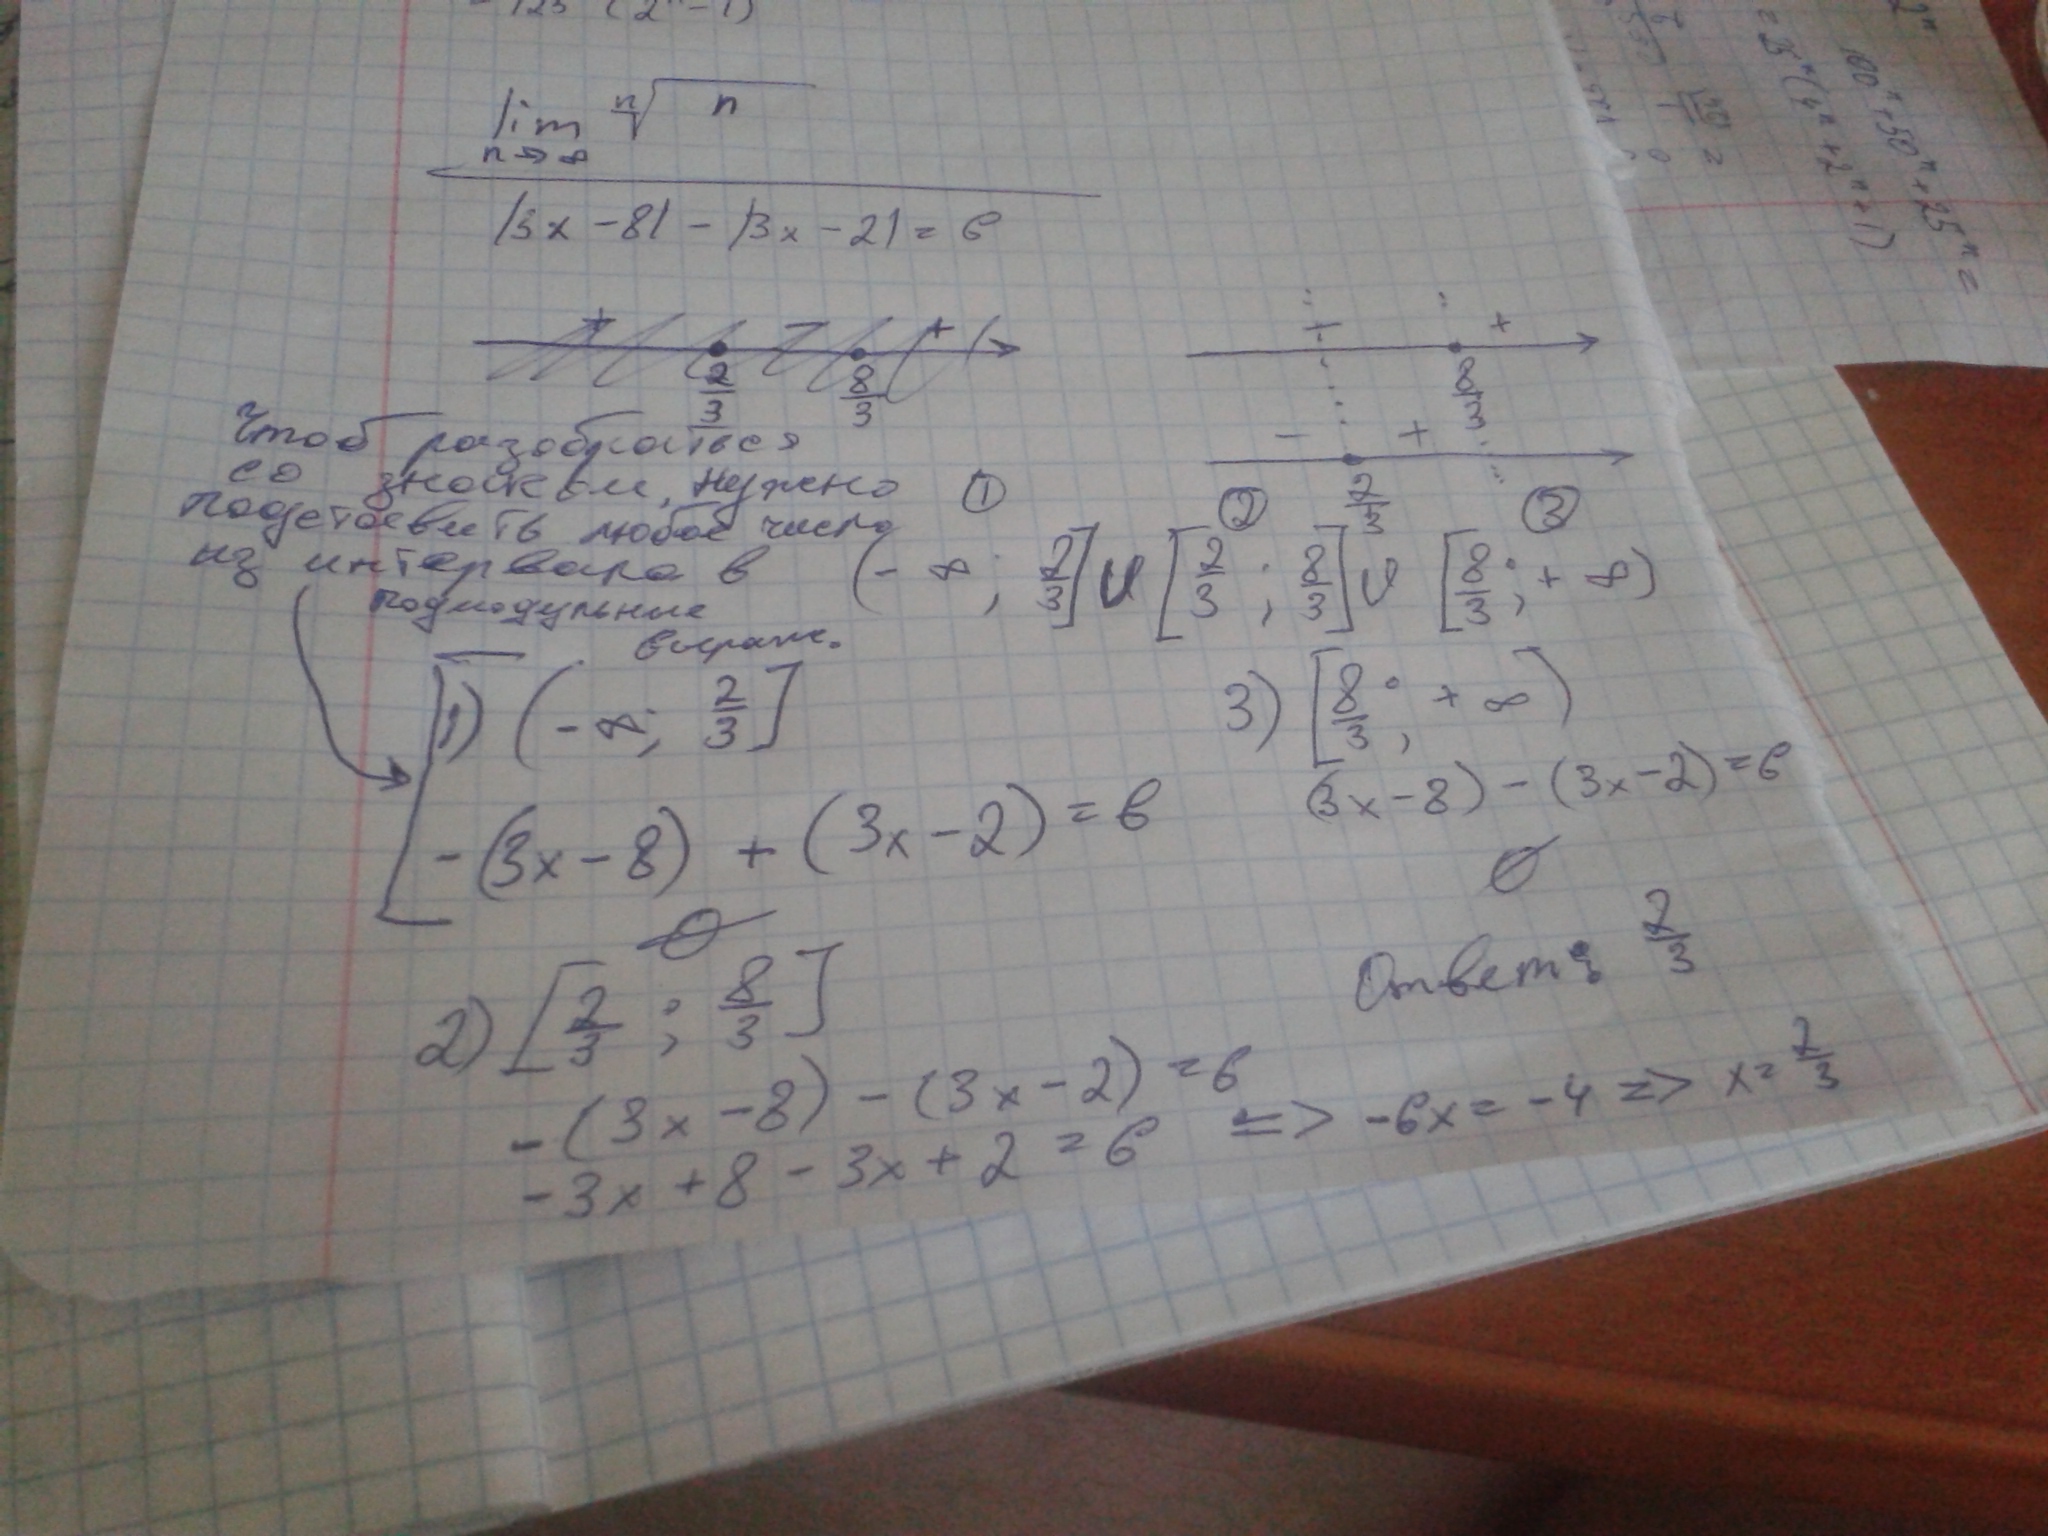 (2ⁿ-1)
lim ⁿ√n
n→∞
|3x-8| - |3x-2| = 6
+ - +
2/3 8/3
+ +
8/3
- +
2/3
Чтоб разобраться
со знаком, нужно
подставить любое число
из интервала в
подмодульные
выраж.
① ② ③
(-∞; 2/3] ∪ [2/3; 8/3] ∪ [8/3; +∞)
1) (-∞; 2/3]
-(3x-8) + (3x-2) = 6
∅
2) [2/3; 8/3]
-(3x-8) - (3x-2) = 6
-3x+8-3x+2 = 6 <=> -6x = -4 => x = 2/3
3) [8/3; +∞)
(3x-8) - (3x-2) = 6
∅
Ответ: 2/3
2ⁿ
100ⁿ+50ⁿ+25ⁿ=
=25ⁿ(4ⁿ+2ⁿ+1)